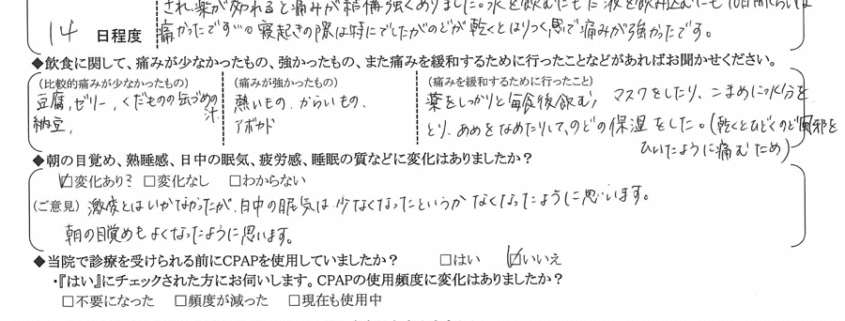 され、薬が切れると痛みが結構強くありました。水を飲むにもだ液を飲み込むにも10日間くらいは
14 日程度
痛かったです… 寝起きの際は特にでしたがのどが乾くとはりつく思で痛みが強かったです。
◆飲食に関して、痛みが少なかったもの、強かったもの、また痛みを緩和するために行ったことなどがあればお聞かせください。
(比較的痛みが少なかったもの) (痛みが強かったもの) (痛みを緩和するために行ったこと)
豆腐,ゼリー,くだものの缶づめの汁 熱いもの、からいもの、 薬をしっかりと毎食後飲む, マスクをしたり、こまめに水分を
納豆, アボカド とり、あめをなめたりして、のどの保湿をした。(乾くとひどくのど風邪を
ひいたように痛むため)
◆朝の目覚め、熟睡感、日中の眠気、疲労感、睡眠の質などに変化はありましたか?
☑変化あり? □変化なし □わからない
(ご意見) 激変とはいかなかったが、日中の眠気は少なくなったというかなくなったように思います。
朝の目覚めもよくなったように思います。
◆当院で診療を受けられる前にCPAPを使用していましたか? □はい ☑いいえ
・『はい』にチェックされた方にお伺いします。CPAPの使用頻度に変化はありましたか?
□不要になった □頻度が減った □現在も使用中